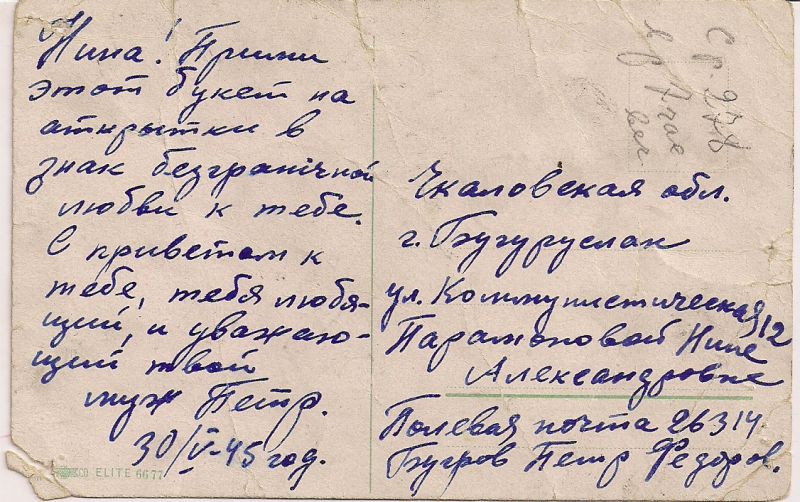 Нина! Прими
этот букет на
аткрытки в
знак безграничной
любви к тебе.
С приветом к
тебе, тебя любя-
щий, и уважаю-
щий твой
муж Петр.
30/V-45 год.
ELITE 6677
Чкаловская обл.
г. Бугуруслан
ул. Коммунистическая 12
Парамоновой Нине
Александровне
Полевая почта 26314
Бугров Петр Федоров.